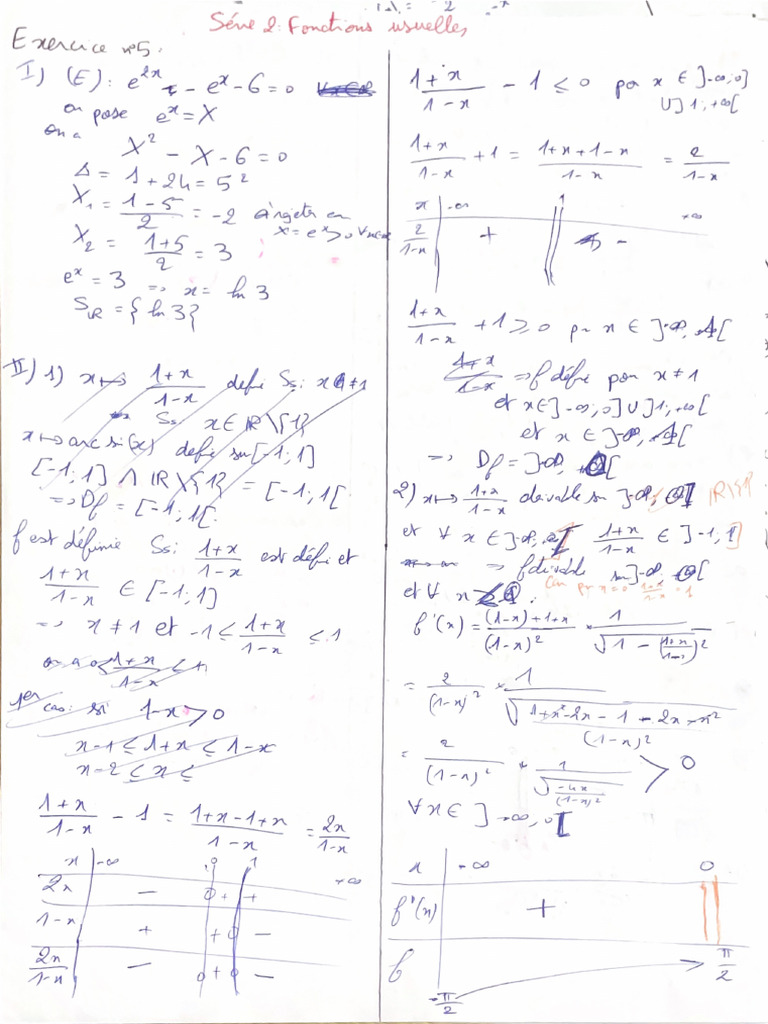 Série 2: Fonctions usuelles
Exercice n°5.
I) (E): e^{2x} - e^x - 6 = 0
on pose e^x = X
on a
X² - X - 6 = 0
Δ = 1 + 24 = 5²
X₁ = (1-5)/2 = -2 à rejeter car
X = e^x > 0 ∀x∈ℝ
X₂ = (1+5)/2 = 3
e^x = 3 => x = ln 3
S_ℝ = {ln 3}
II) 1) x ↦ (1+x)/(1-x) défi Ssi x ≠ 1
Ssi x ∈ ℝ\{1}
x ↦ arc si(x) défie sur [-1; 1]
[-1; 1] ∩ ℝ\{1} = [-1; 1[
=> Df = [-1; 1[.
f est définie Ssi (1+x)/(1-x) est défi et
(1+x)/(1-x) ∈ [-1; 1]
=> x ≠ 1 et -1 ≤ (1+x)/(1-x) ≤ 1
1er cas: si 1-x > 0
x-1 ≤ 1+x ≤ 1-x
x-2 ≤ x ≤
(1+x)/(1-x) - 1 = (1+x-1+x)/(1-x) = 2x/(1-x)
x | -∞ 0 1 +∞
2x | - 0 + +
1-x | + + 0 -
2x/(1-x) | - 0 + 0 -
(1+x)/(1-x) - 1 ≤ 0 por x ∈ ]-∞; 0]
∪ ]1; +∞[
(1+x)/(1-x) + 1 = (1+x+1-x)/(1-x) = 2/(1-x)
x | -∞ 1 +∞
2/(1-x) | + || -
(1+x)/(1-x) + 1 ≥ 0 pr x ∈ ]-∞, 1[
=> f défie por x ≠ 1
et x ∈ ]-∞; 0] ∪ ]1; +∞[
et x ∈ ]-∞, 1[
=> Df = ]-∞, 0]
2) x ↦ (1+x)/(1-x) derivable sur ℝ\{1}
et ∀ x ∈ ]-∞, 0[ (1+x)/(1-x) ∈ ]-1, 1[
=> f derivable sur ]-∞, 0[
Car pr x=0 (1+x)/(1-x) = 1
et ∀ x < 0.
f'(x) = ((1-x)+1+x)/(1-x)² × 1/√(1 - ((1+x)/(1-x))²)
= 2/(1-x)² × 1/√((1+x²-2x-1-2x-x²)/(1-x)²)
= 2/(1-x)² × 1/√(-4x/(1-x)²) > 0
∀ x ∈ ]-∞, 0[
x | -∞ 0
f'(x) | + ||
f | -π/2 → π/2